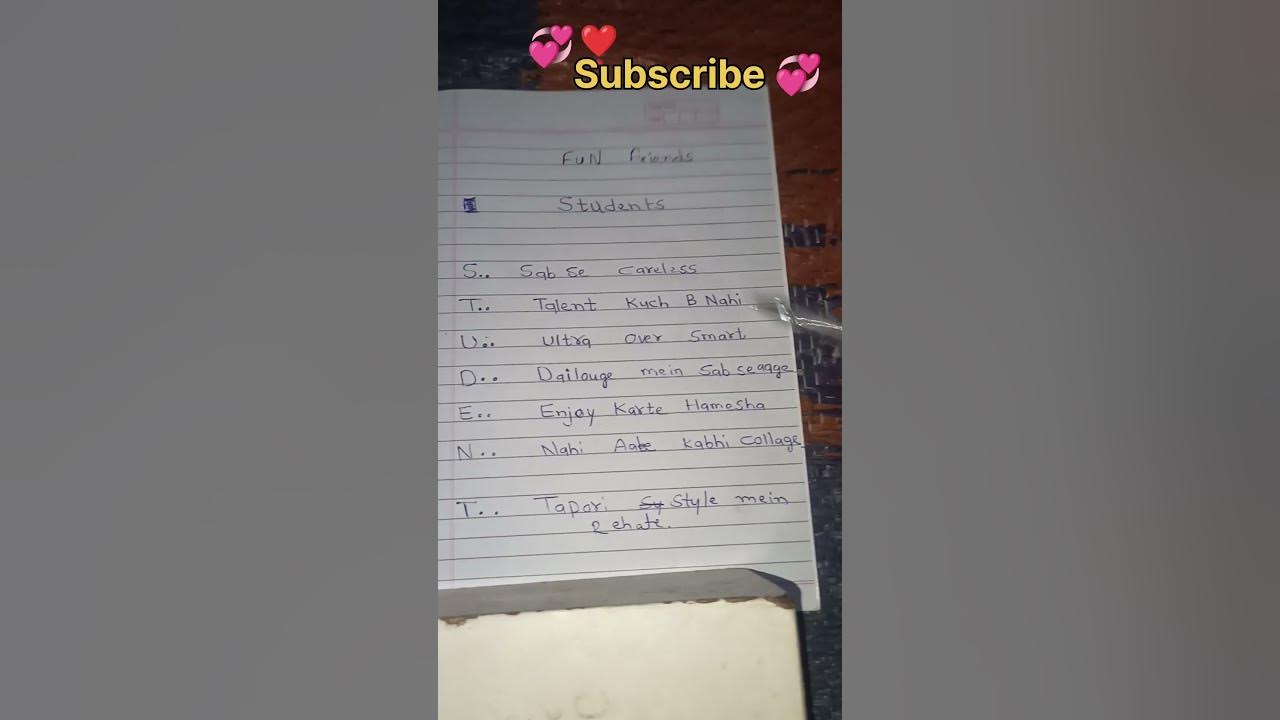 Subscribe
FUN Friends
Students
S.. Sab se Careless
T.. Talent Kuch B Nahi
U.. Ultra over Smart
D.. Dailouge mein Sab se aage
E.. Enjoy Karte Hamesha
N.. Nahi Aate Kabhi Collage
T.. Tapori Sy Style mein
Rehate.